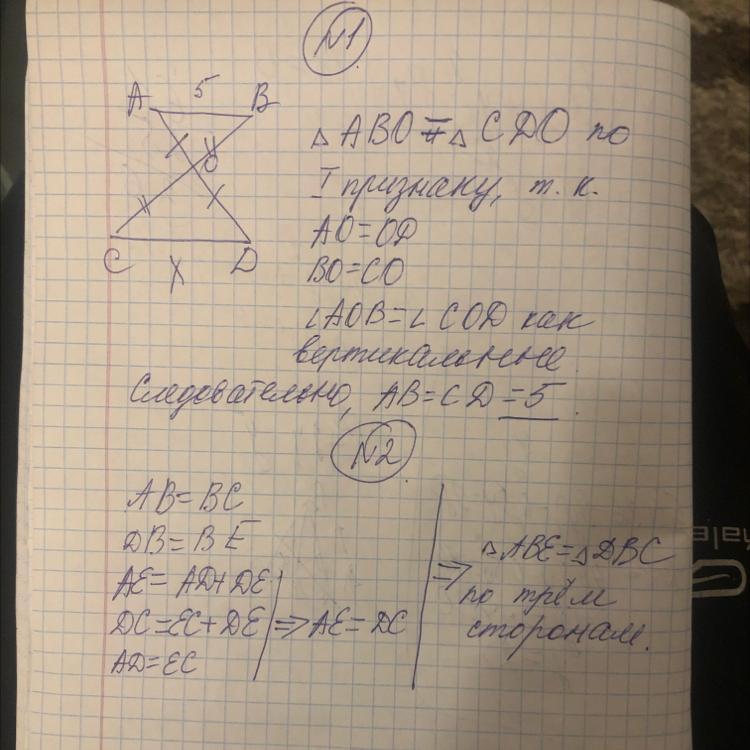 N1
A 5 B
O
C x D
△ABO = △CDO по
I признаку, т. к.
AO=OD
BO=CO
∠AOB=∠COD как
вертикальные.
Следовательно, AB=CD=5.
N2
AB=BC
DB=BE
AE=AD+DE
DC=EC+DE ⇒ AE=DC
AD=EC
⇒ △ABE=△DBC
по трём
сторонам.